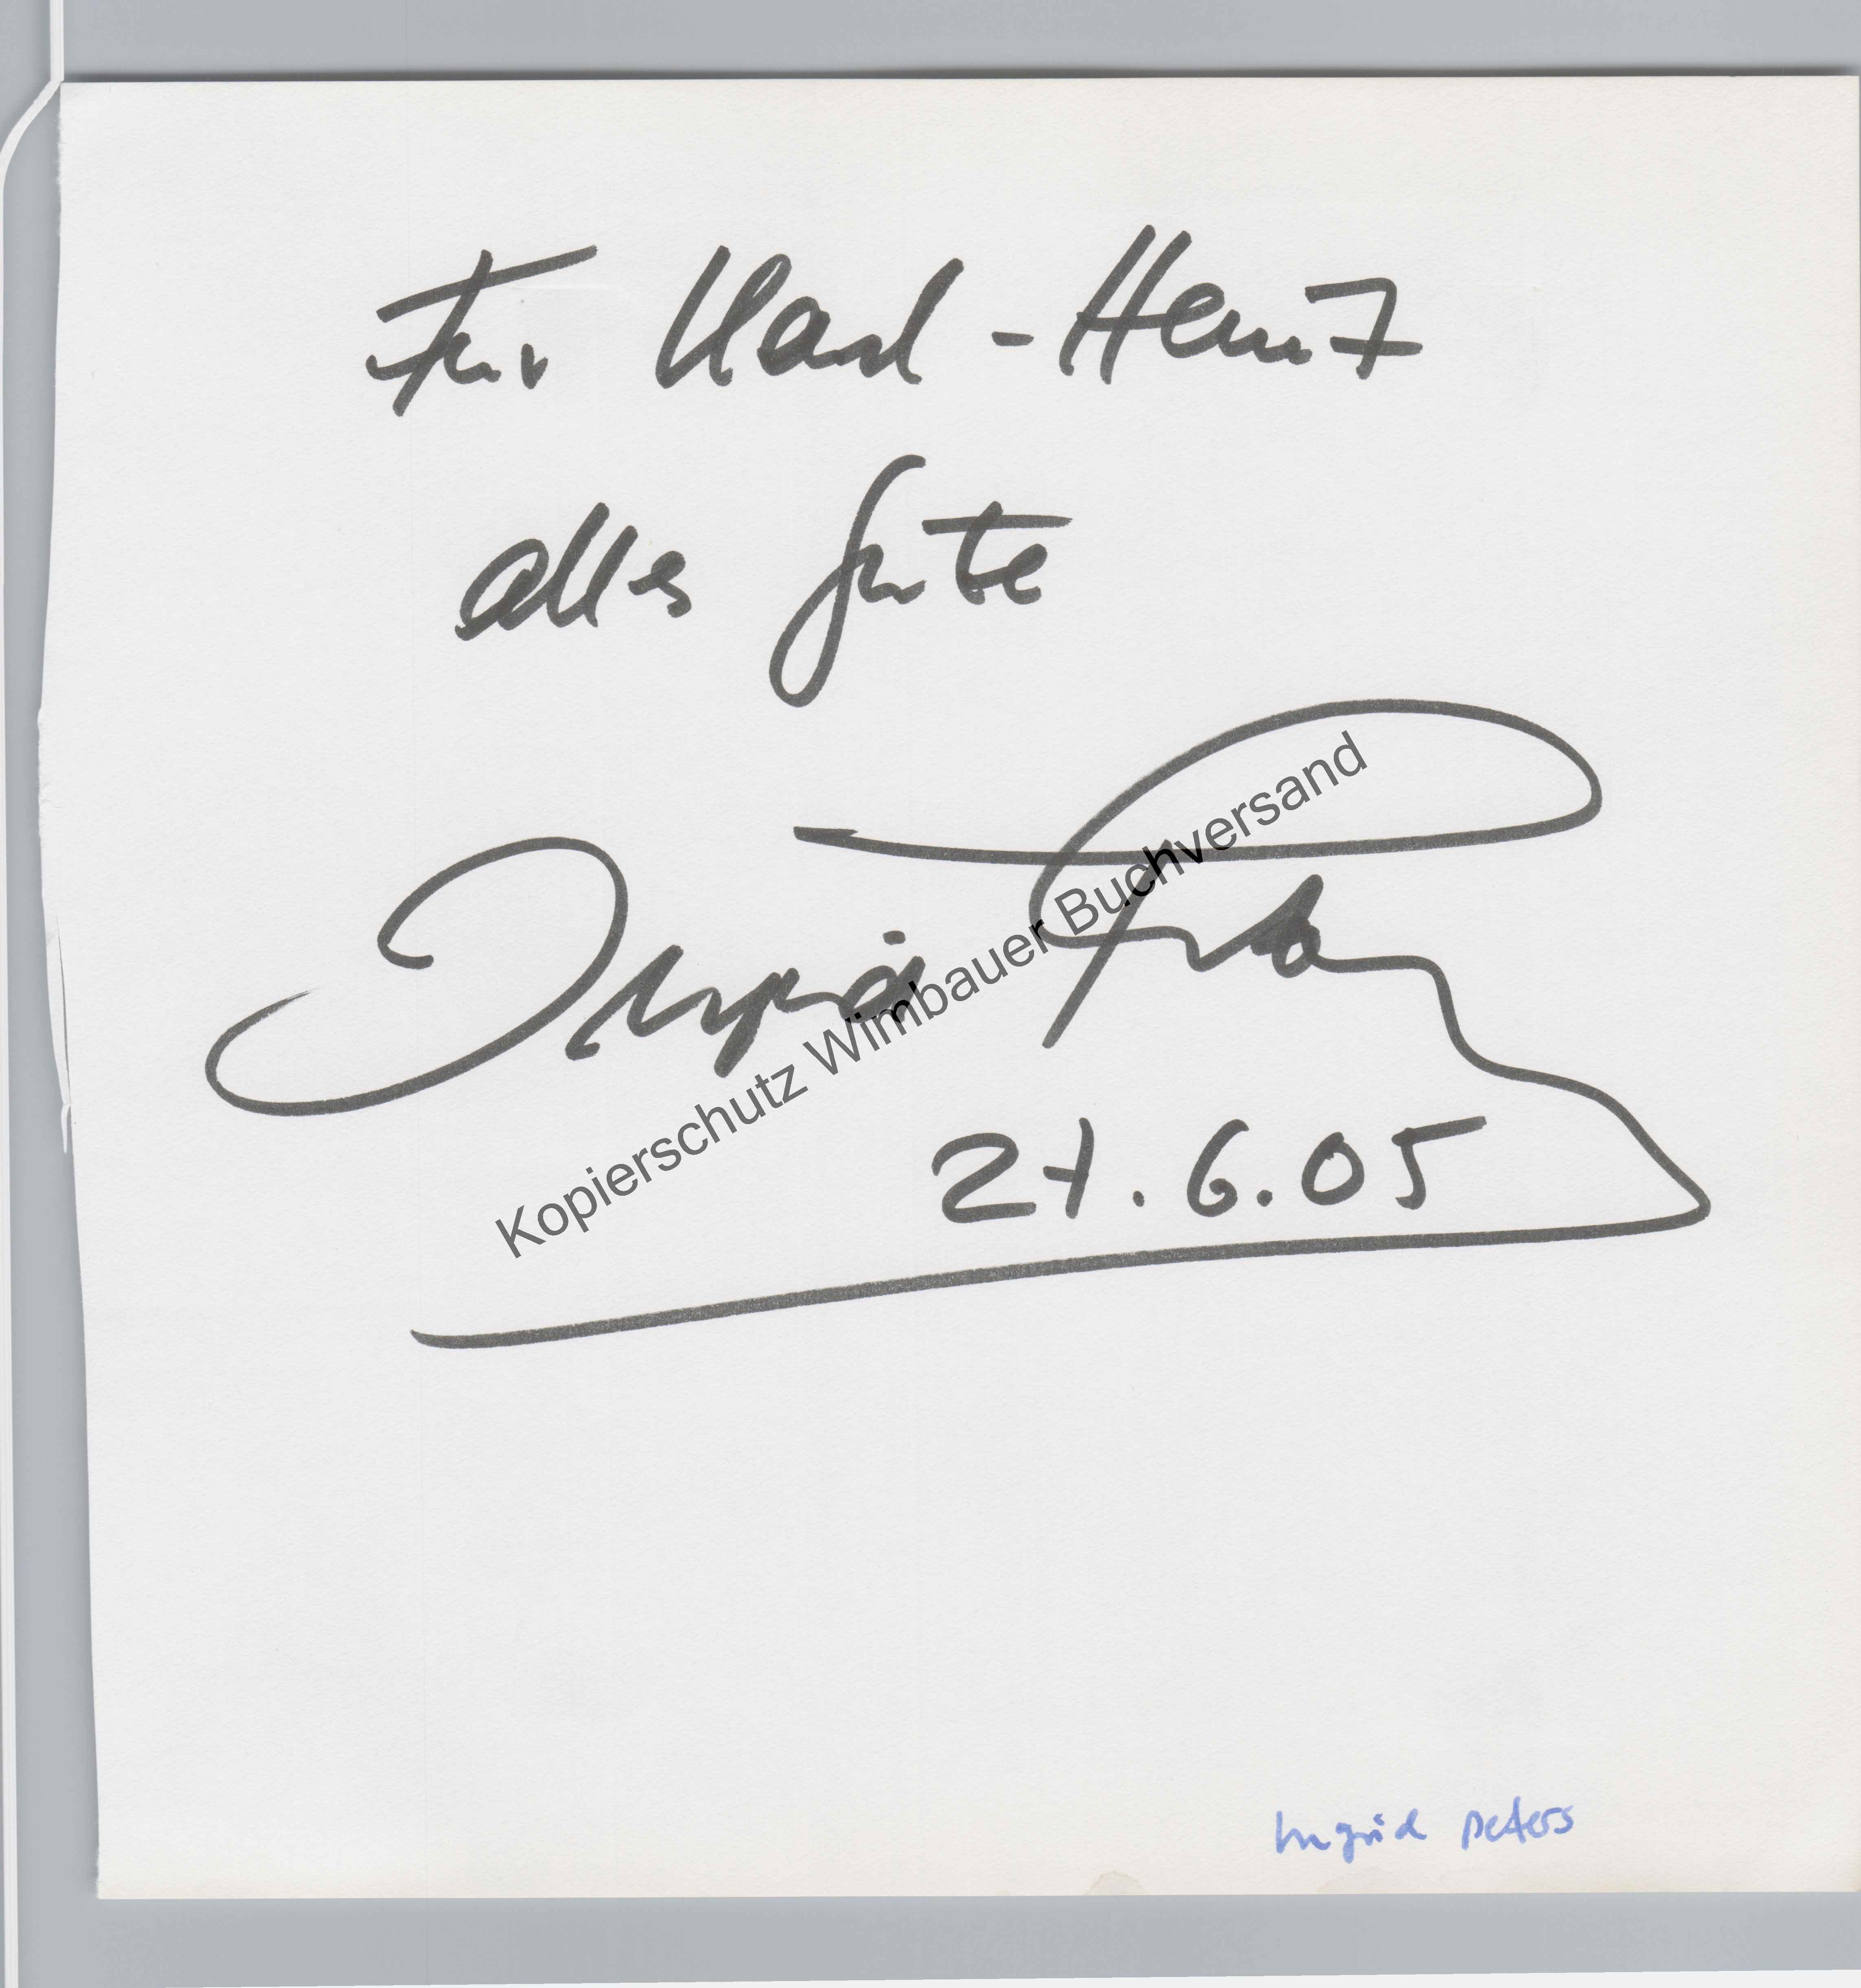 Für Karl-Heinz
alles Gute
Ingrid Peters
21.6.05
Kopierschutz Wimbauer Buchversand
Ingrid Peters